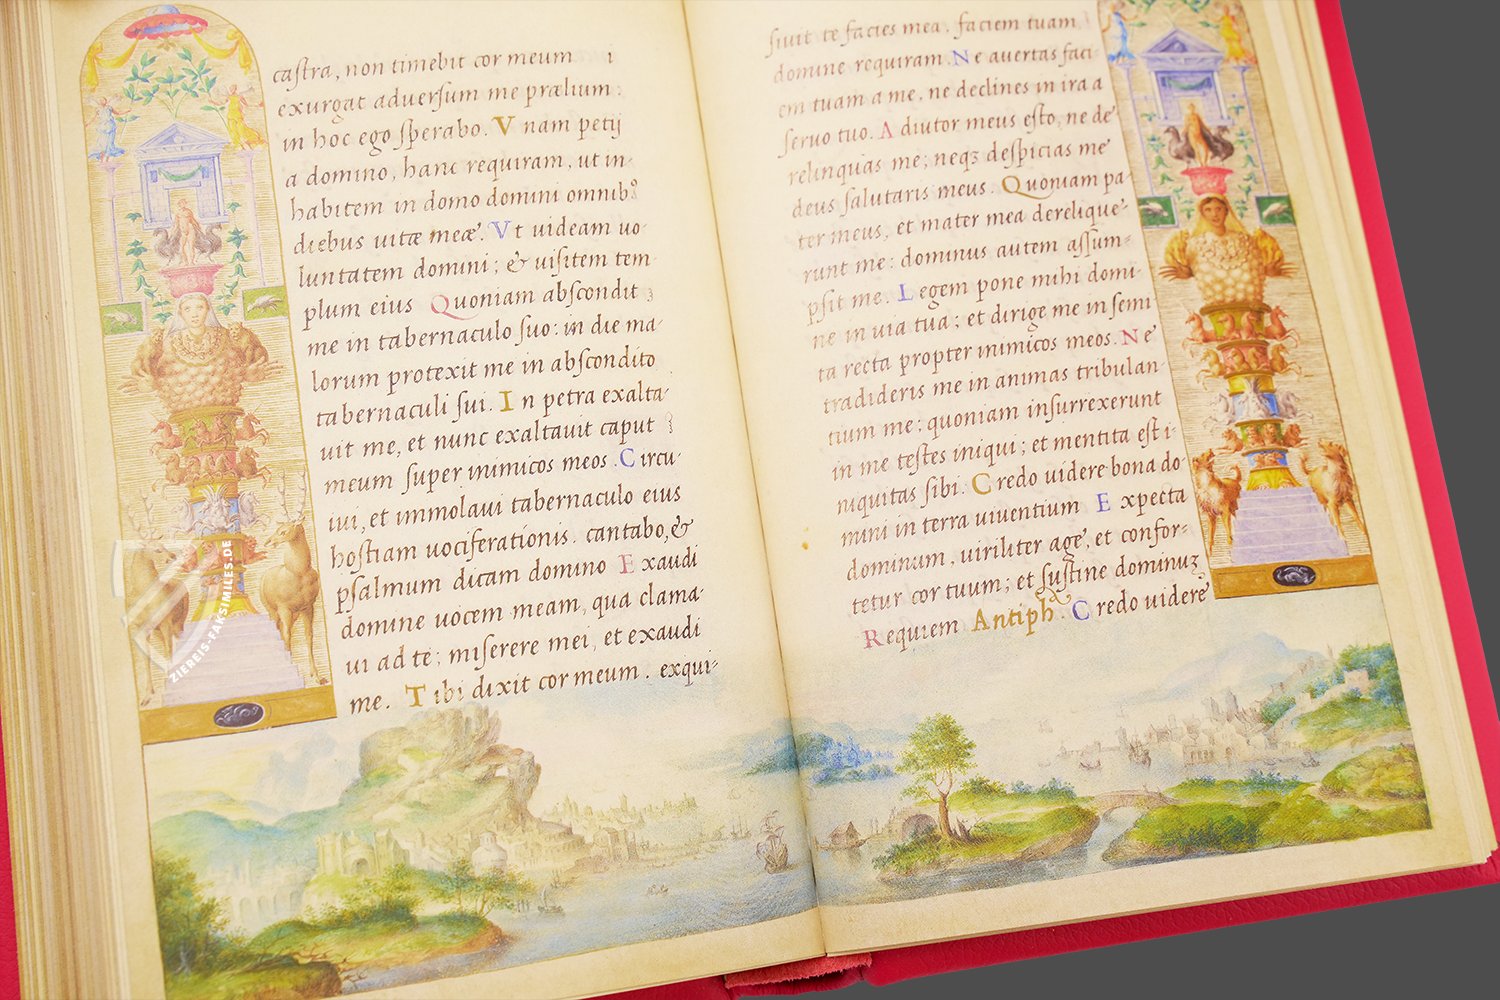 castra, non timebit cor meum
exurgat aduersum me prælium:
in hoc ego sperabo. Vnam petij
a domino, hanc requiram, ut in-
habitem in domo domini omnibꝰ
diebus uitæ meæ. Vt uideam uo-
luntatem domini; & uisitem tem
plum eius Quoniam abscondit
me in tabernaculo suo: in die ma-
lorum protexit me in abscondito
tabernaculi sui. In petra exalta-
uit me, et nunc exaltauit caput
meum super inimicos meos. Circu-
iui, et immolaui tabernaculo eius
hostiam uociferationis. cantabo, &
psalmum dicam domino Exaudi
domine uocem meam, qua clama-
ui ad te; miserere mei, et exaudi
me. Tibi dixit cor meum. exqui-
siuit te facies mea, faciem tuam
domine requiram. Ne auertas faci-
em tuam a me, ne declines in ira a
seruo tuo. Adiutor meus esto, ne de
relinquas me; neqꝫ despicias me
deus salutaris meus. Quoniam pa-
ter meus, et mater mea derelique-
runt me: dominus autem assum-
psit me. Legem pone mihi domi-
ne in uia tua; et dirige me in semi
ta recta propter inimicos meos. Ne
tradideris me in animas tribulan-
tium me; quoniam insurrexerunt
in me testes iniqui; et mentita est i-
niquitas sibi. Credo uidere bona do-
mini in terra uiuentium Expecta
dominum, uiriliter age, et confor-
tetur cor tuum; et sustine dominuꝫ
Requiem Antiph. Credo uidere
ZIEREIS-FAKSIMILES.DE